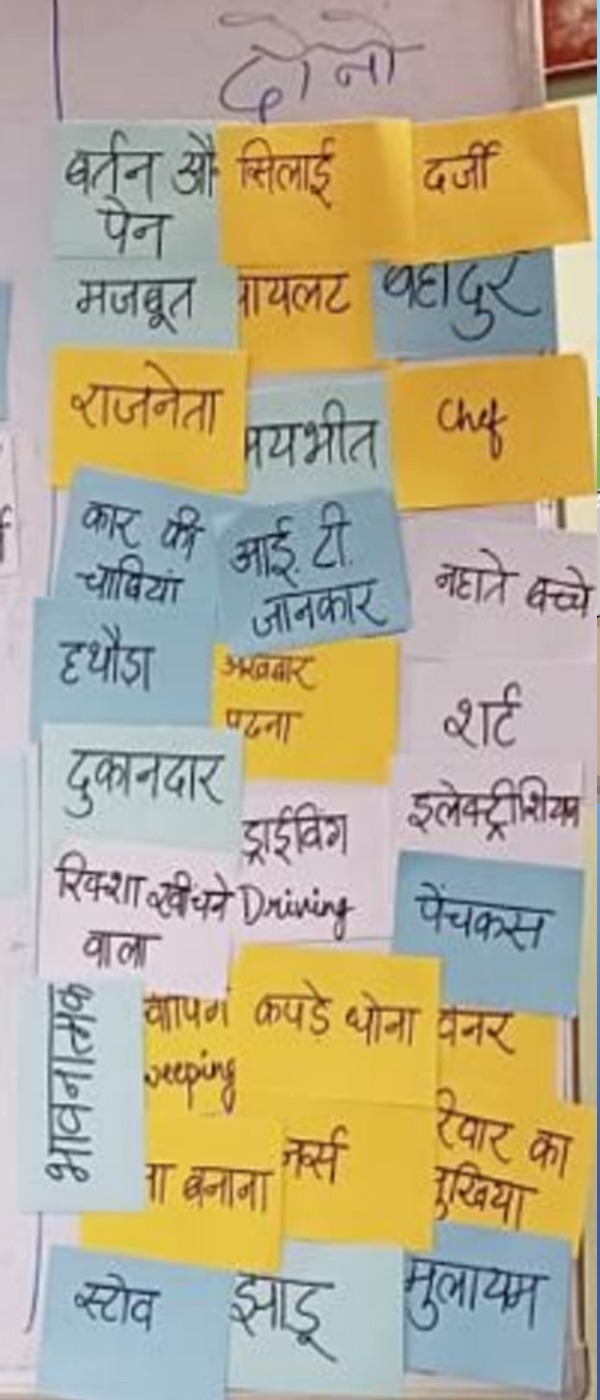 दोनो
बर्तन औ
पेन
सिलाई
दर्जी
मजबूत
पायलट
बहादुर
राजनेता
भयभीत
Chef
कार की
चाबियां
आई. टी.
जानकार
नहाते बच्चे
हथौड़ा
अखबार
पढना
शर्ट
दुकानदार
ड्राईविंग
Driving
इलेक्ट्रीशियन
रिक्शा खीचने
वाला
पेंचकस
भावनात्मक
eeping
कपड़े धोना
वनर
ना बनाना
नर्स
रिवार का
मुखिया
स्टोव
झाडू
मुलायम